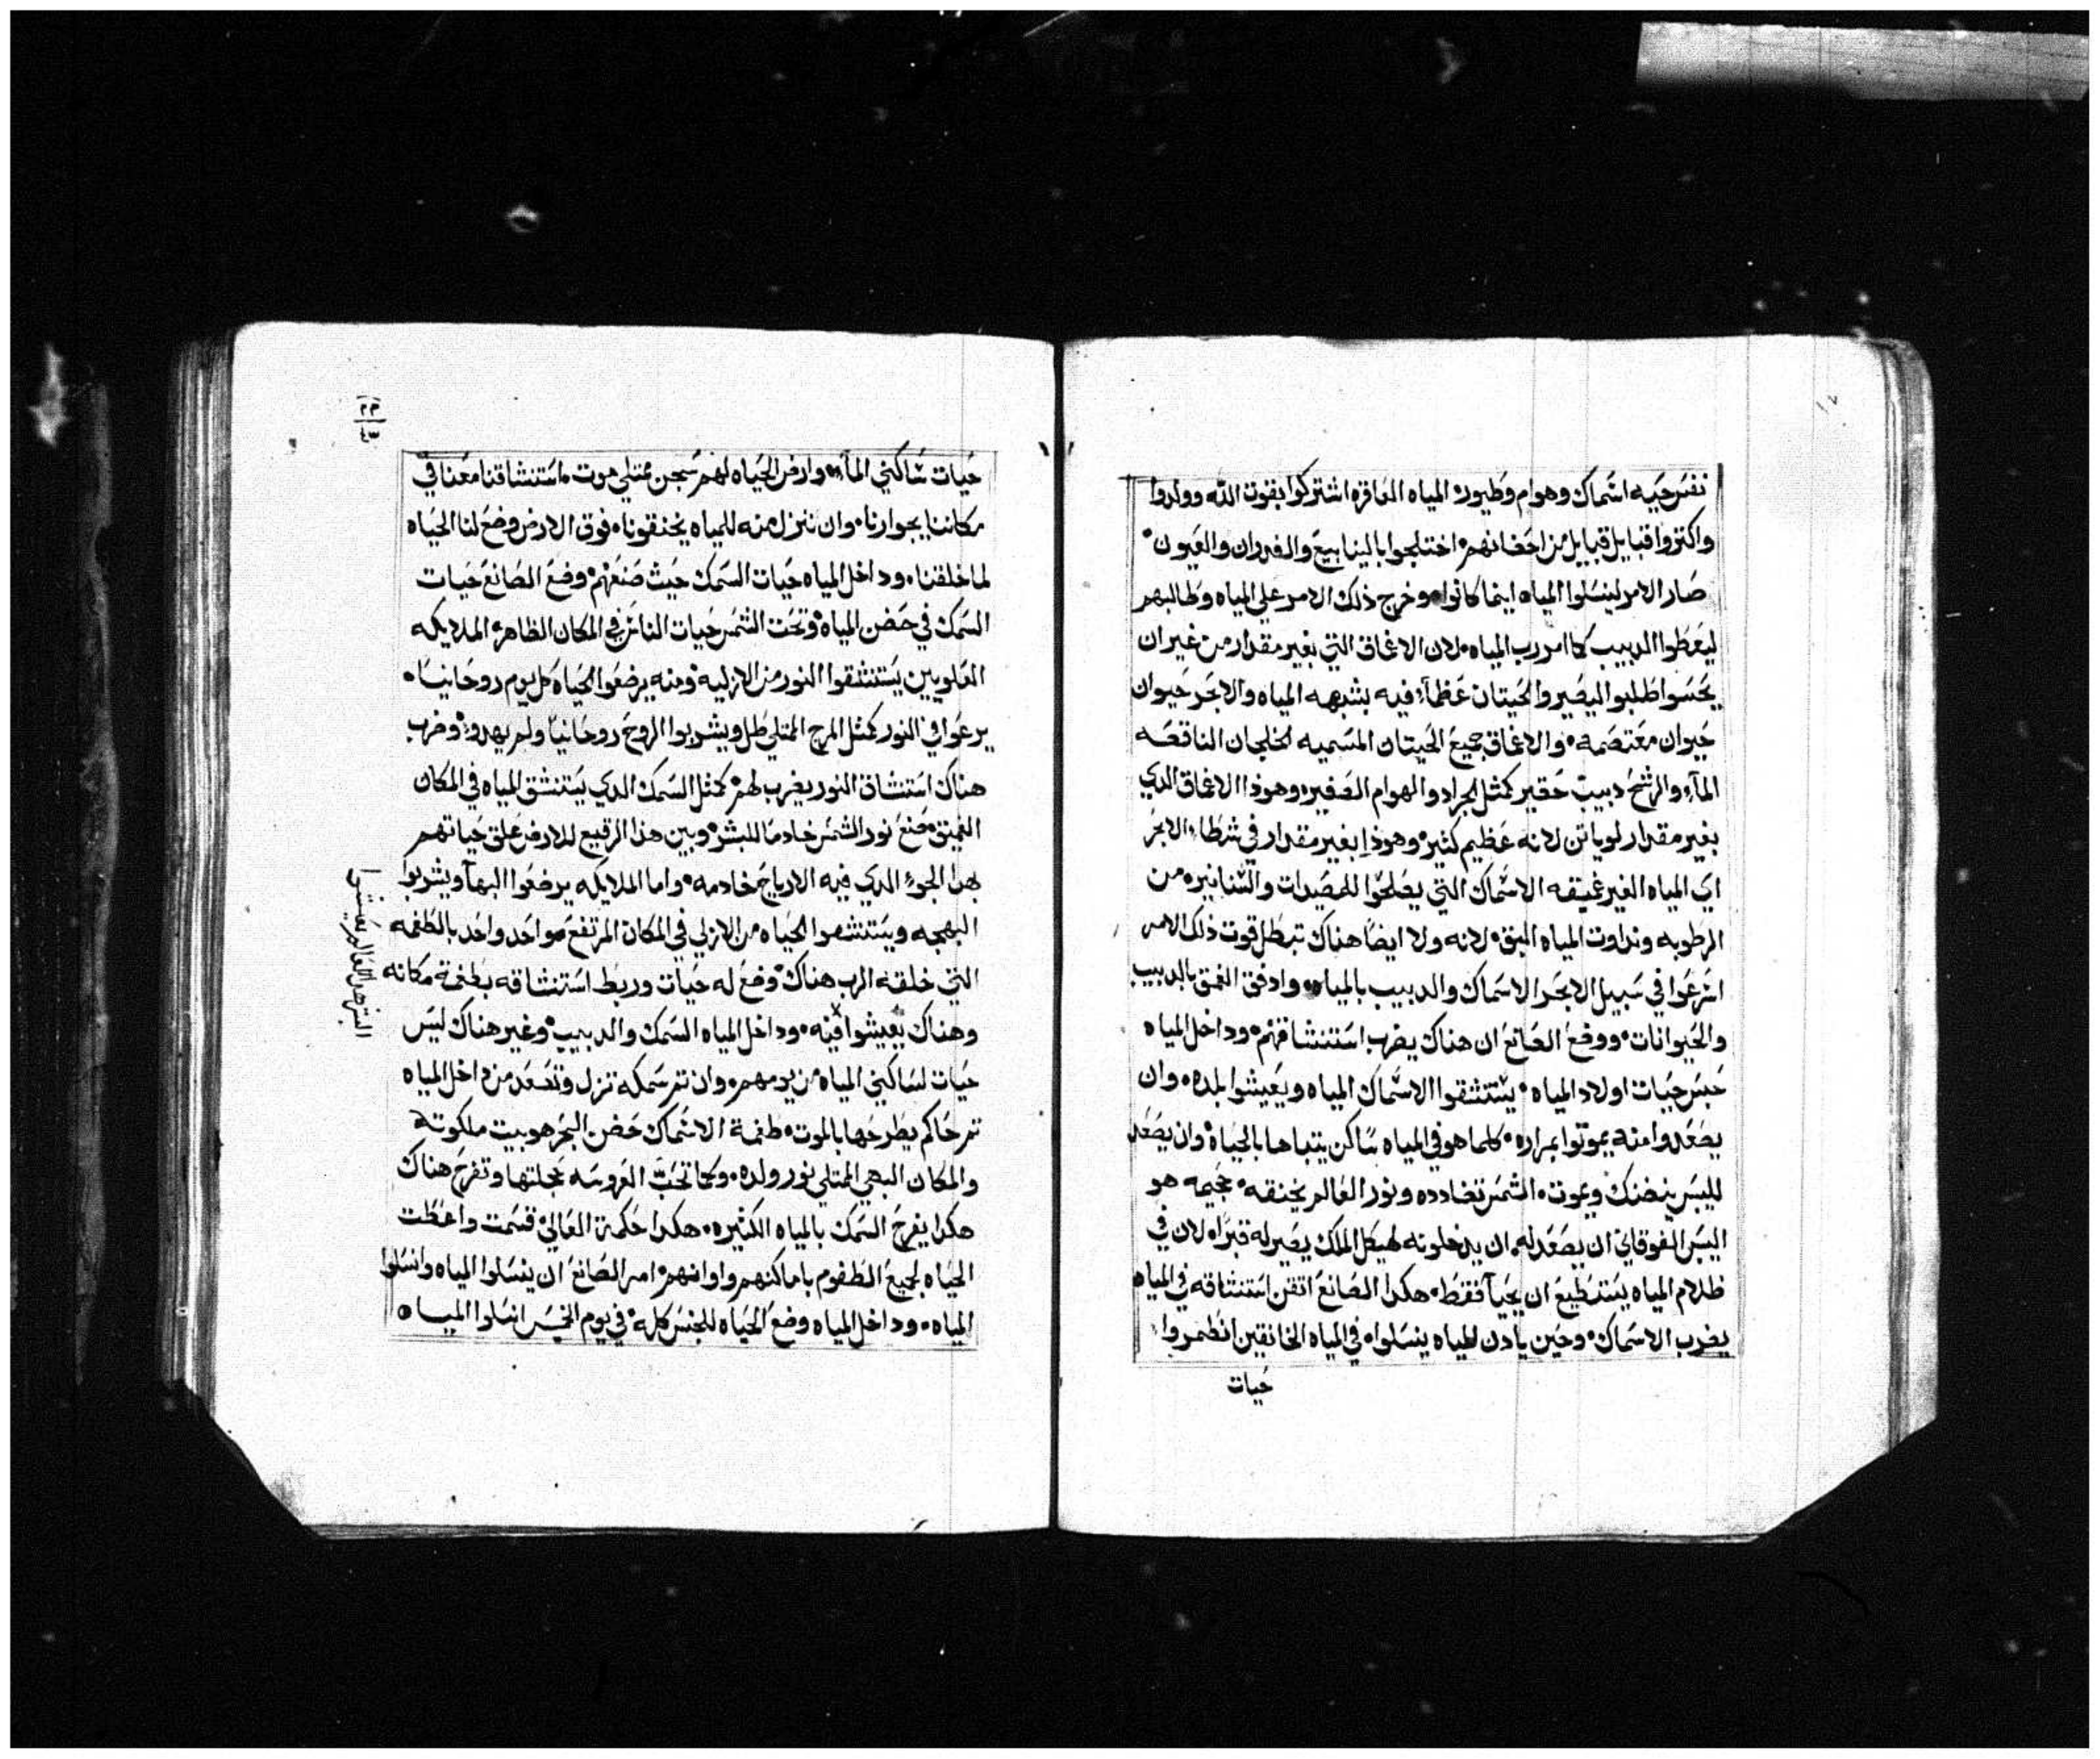 ١٧
نفس حيه اسماك وهوام وطيور المياه العاقره اشتركوا بقوت الله وولدوا
واكتروا قبايل قبايل من احضانهم اختلجوا بالينابيع والغدران والعيون
صار الامر لينسلوا المياه اينما كانوا وخرج ذلك الامر علي المياه وطالبهم
ليعطوا الدبيب كما امر رب المياه لان الاعماق التي بغير مقدار من غير ان
يحسوا طلبوا ليصير والحيتان عظما فيه بشبهه المياه والابحر حيوان
حيوان معتصمه والاعماق جميع الحيتان المسميه الخلجان الناقصه
الماء والرشح دبيب حقير كمثل الجراد والهوام الصغيره وهوذا الاعماق الدي
بغير مقدار لوياتن لانه عظيم كثير وهوذا بغير مقدار في شطاء الابحر
اي المياه الغير عميقه الاسماك التي يصلحوا للمصيدات والشنانيره من
الرطوبه ونداوت المياه البتق لانه ولا ايضا هناك تبطل قوت ذلك الامر
اشرعوا في سبيل الابحر الاسماك والدبيب بالمياه وادفق العمق بالدبيب
والحيوانات ووضع الصانع ان هناك يضرب استنشاقهم وداخل المياه
حبس حيات اولاد المياه يستنشقوا الاسماك المياه ويعيشوا بلده وان
يصعدوا منه يموتوا بمراره كلما هو في المياه ساكن يتباها بالحياه وان يصعد
لليبس يضنك ويموت الشمس تضادده ونور العالم يخنقه جحيمه هو
اليبس الفوقاني ان يصعد له ان يدخلونه لهيكل الملك يصير له قبرا لان في
ظلام المياه يستطيع ان يحيا فقط هكدا الصانع اتقن استنشاقه في المياه
يضرب الاسماك وحين يادن المياه ينسلوا في المياه الخانقين انطمروا
حيات
٢٣
٤٣
حيات ساكني الماء وارض الحياه لهم سجن ممتلي موت استنشاقنا معنا في
مكاننا بجوارنا وان ننزل منه للمياه يخنقونا فوق الارض وضع لنا الحياه
لما خلقنا وداخل المياه حيات السمك حيث صنعهم وضع الصانع حيات
السمك في حضن المياه وتحت الشمس حيات الناس في المكان الظاهر الملايكه
العلويين يستنشقوا النور من الازليه ومنه يرضعوا الحياه كل يوم روحانيا
يرعوا في النور كمثل المرج الممتلي طل ويشربوا الروح روحانيا ولم يهدو وضرب
هناك استنشاق النور يضرب لهم كمثل السمك الدي يستنشق المياه في المكان
العميق صنع نور الشمس خادما للبشر وبين هذا الرقيع للارض علق حياتهم
بهدا الجو الدي فيه الارياح خادمه واما الملايكه يرضعوا البها ويشربوا
البهجه ويستنشقوا الحياه من الازلي في المكان المرتفع هو احد واحد بالطغمه
التي خلقه الرب هناك وضع له حيات وربط استنشاقه بطغمة مكانه
وهناك يعيشوا فيه وداخل المياه السمك والدبيب وغير هناك ليس
حيات لساكني المياه من يومهم وان تم سمكه تزل وتصعد من داخل المياه
تم حاكم يطرحها بالموت طغمة الاسماك حضن البحر هو بيت ملكوته
والمكان البهي الممتلي نور ولده وكما تحب العروسه حجلتها وتفرح هناك
هكدا يفرح السمك بالمياه الكثيره هكدا حكمة العالي قسمت واعطت
الحياه لجميع الطغوم باماكنهم واوانهم امر الصانع ان ينسلوا المياه وانسلوا
المياه وداخل المياه وضع الحياه للجنس كله في يوم الخميس انسلوا المياه
البشر بهدا العالم يعيشوا